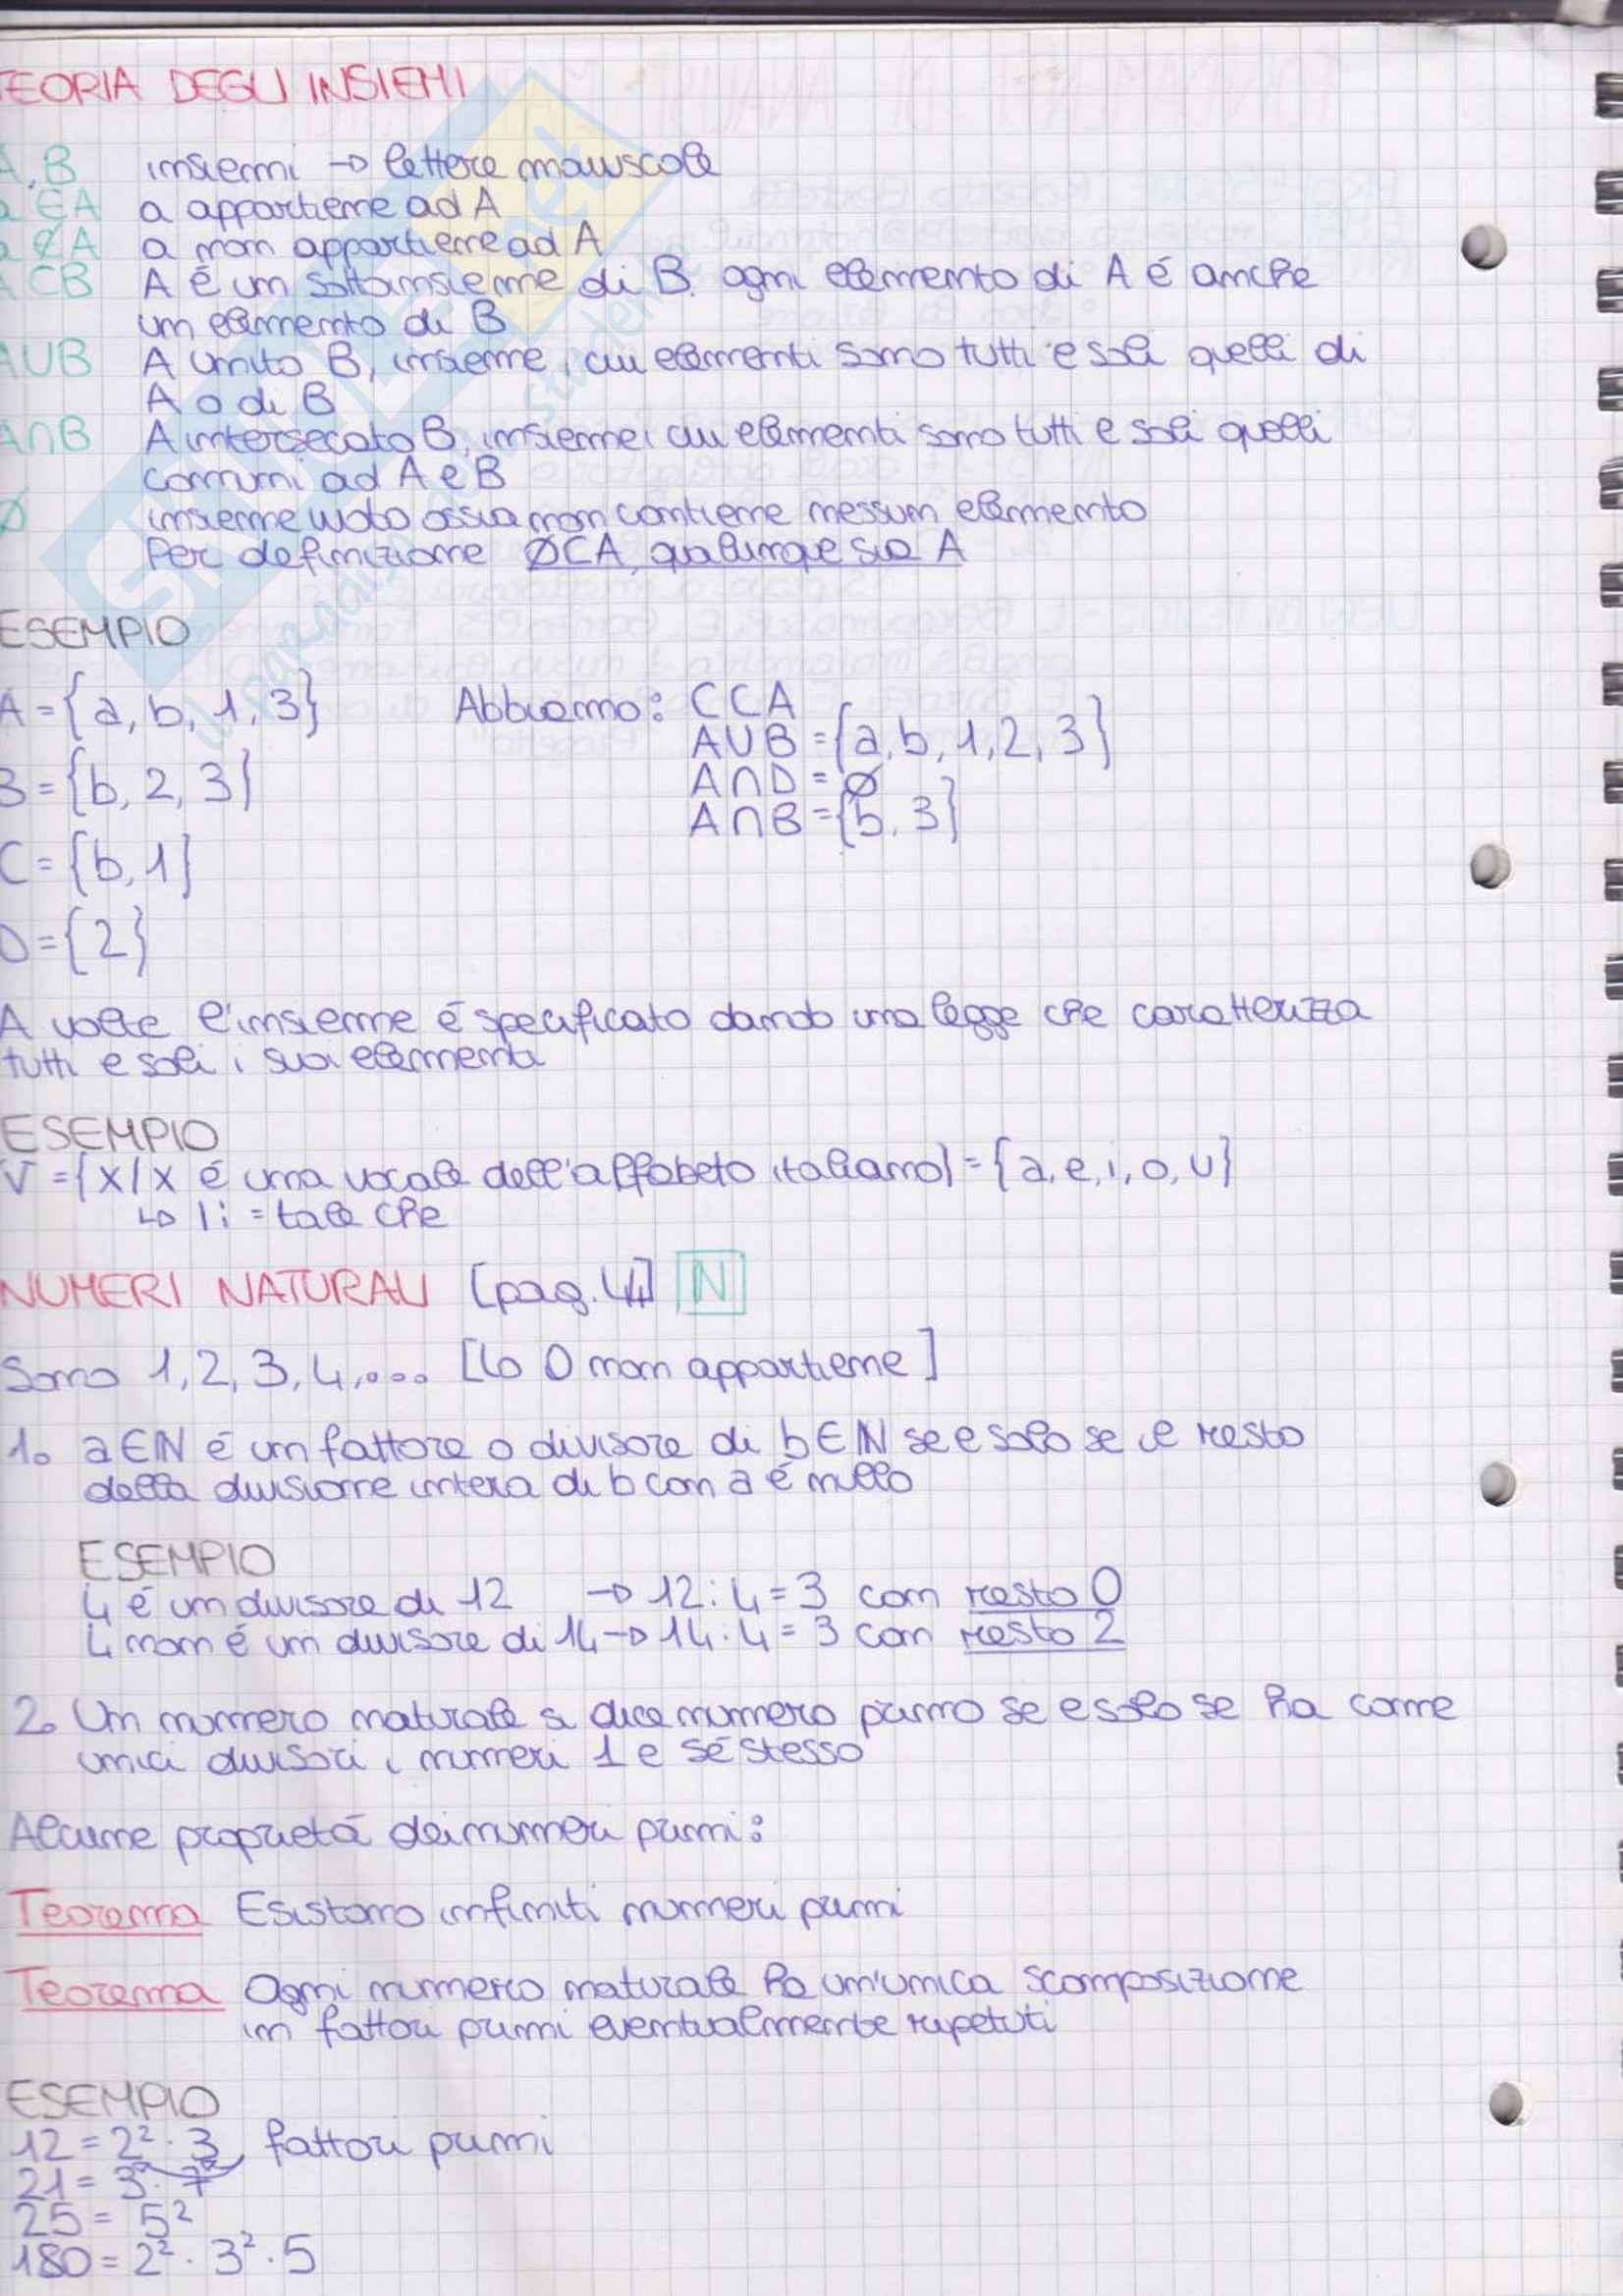 TEORIA DEGLI INSIEMI
A,B insiemi → lettere maiuscole
a ∈ A a appartiene ad A
a ∉ A a non appartiene ad A
A ⊂ B A é un sottoinsieme di B. ogni elemento di A é anche
un elemento di B
A∪B A unito B, insieme i cui elementi sono tutti e soli quelli di
A o di B
A∩B A intersecato B, insieme i cui elementi sono tutti e soli quelli
comuni ad A e B
Ø insieme vuoto ossia non contiene nessun elemento
Per definizione Ø⊂A, qualunque sia A
ESEMPIO
A = {a, b, 1, 3} Abbiamo: C⊂A
A∪B = {a, b, 1, 2, 3}
B = {b, 2, 3} A∩D = Ø
A∩B = {b, 3}
C = {b, 1}
D = {2}
A volte l'insieme é specificato dando una legge che caratterizza
tutti e soli i suoi elementi
ESEMPIO
V = {x/x é una vocale dell'alfabeto italiano} = {a, e, i, o, u}
↳ |: = tale che
NUMERI NATURALI [pag. 4] N
Sono 1, 2, 3, 4, ... [lo 0 non appartiene]
1. a∈N é un fattore o divisore di b∈N se e solo se il resto
della divisione intera di b con a é nullo
ESEMPIO
4 é un divisore di 12 → 12:4=3 con resto 0
4 non é un divisore di 14 → 14:4=3 con resto 2
2. Un numero naturale si dice numero primo se e solo se ha come
unici divisori i numeri 1 e sé stesso
Alcune proprietá dei numeri primi:
Teorema Esistono infiniti numeri primi
Teorema Ogni numero naturale ha un'unica scomposizione
in fattori primi eventualmente ripetuti
ESEMPIO
12 = 2² · 3 fattori primi
21 = 3 · 7
25 = 5²
180 = 2² · 3² · 5